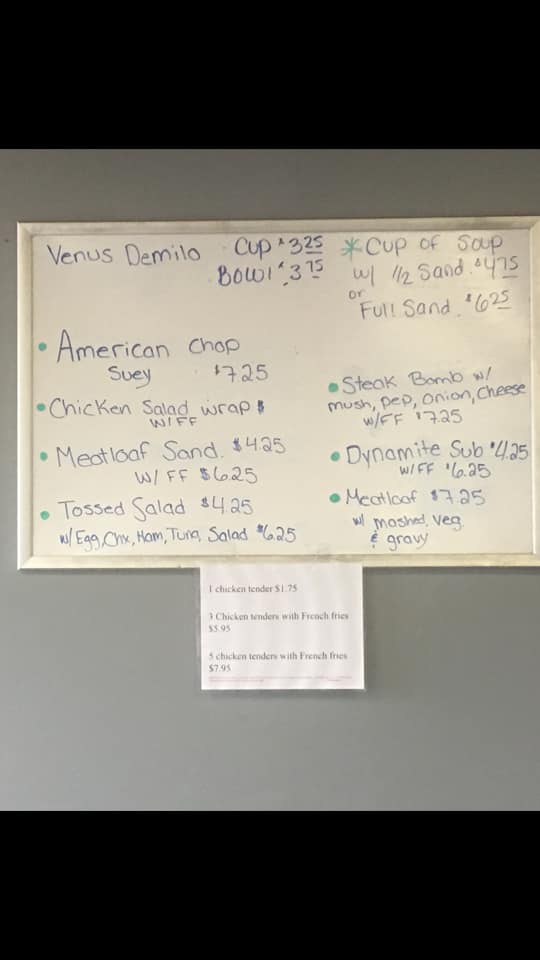 Venus Demilo Cup $3.25
Bowl $3.75
* Cup of Soup
w/ 1/2 Sand. $4.75
or
Full Sand. $6.25
• American Chop
Suey $7.25
• Chicken Salad wrap $
w/FF
• Meatloaf Sand. $4.25
w/ FF $6.25
• Tossed Salad $4.25
w/ Egg, Chx, Ham, Tuna, Salad $6.25
• Steak Bomb w/
mush, pep, onion, cheese
w/FF $7.25
• Dynamite Sub $4.25
w/FF $6.25
• Meatloaf $7.25
w/ mashed, veg
& gravy
1 chicken tender $1.75
3 Chicken tenders with French fries
$5.95
5 chicken tenders with French fries
$7.95